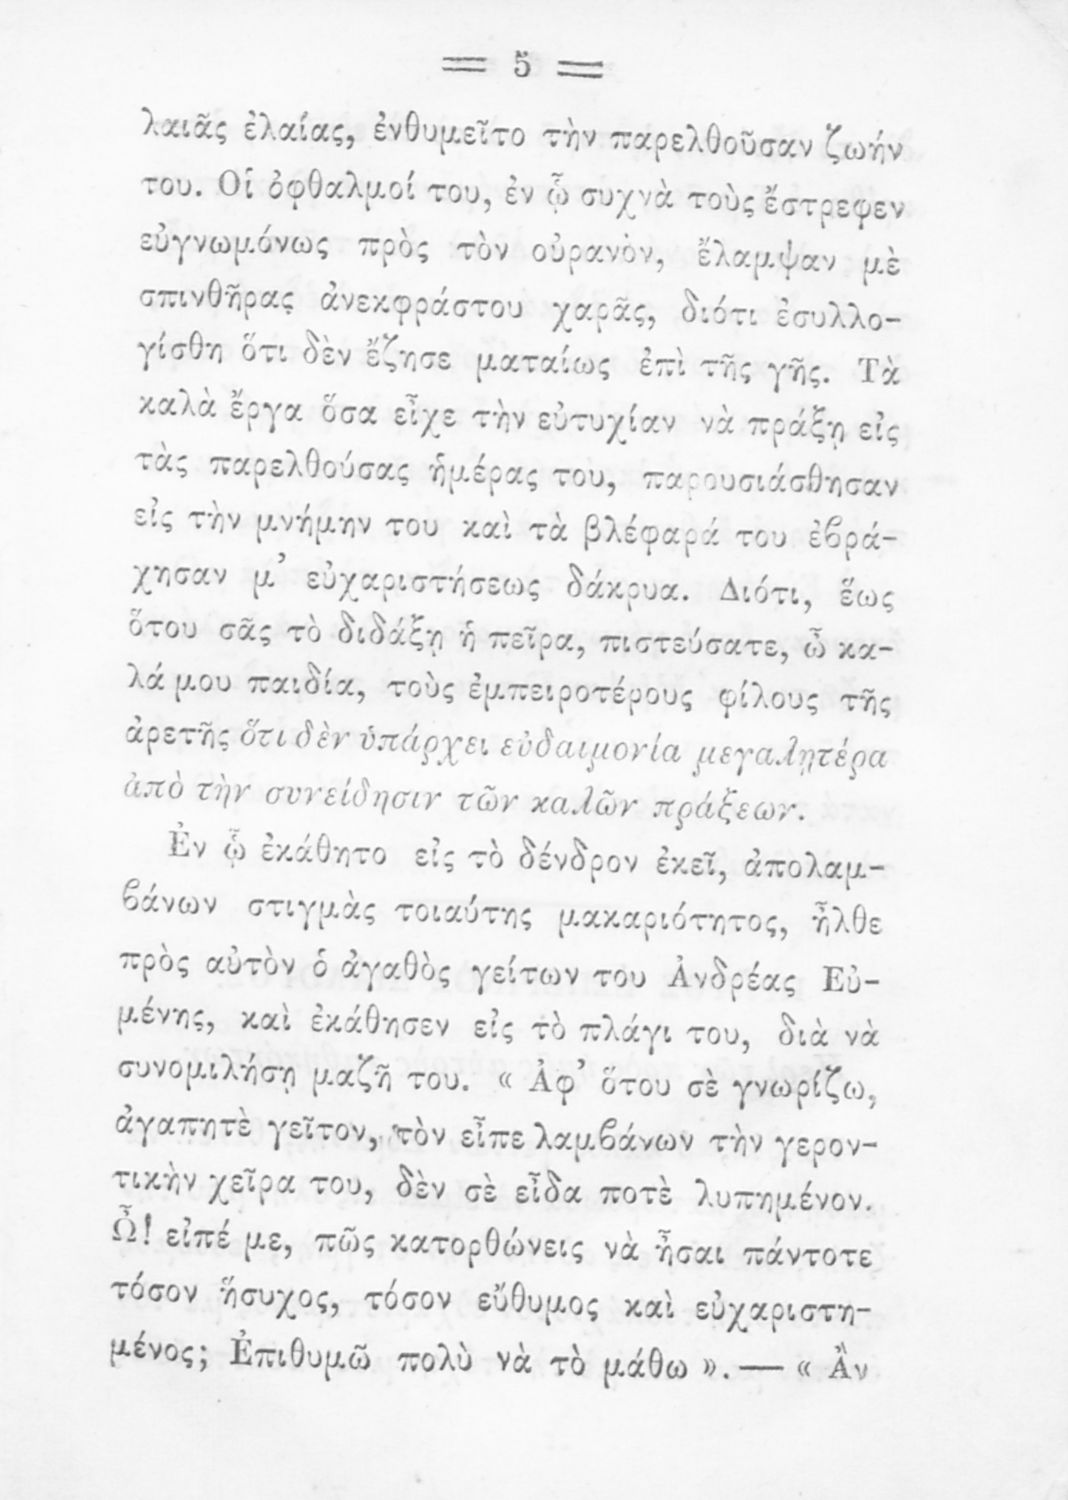 = 5 =
λαιᾶς ἐλαίας, ἐνθυμεῖτο τὴν παρελθοῦσαν ζωήν
του. Οἱ ὀφθαλμοί του, ἐν ᾧ συχνὰ τοὺς ἔστρεφεν
εὐγνωμόνως πρὸς τὸν οὐρανὸν, ἔλαμψαν μὲ
σπινθῆρας ἀνεκφράστου χαρᾶς, διότι ἐσυλλο-
γίσθη ὅτι δὲν ἔζησε ματαίως ἐπὶ τῆς γῆς. Τὰ
καλὰ ἔργα ὅσα εἶχε τὴν εὐτυχίαν νὰ πράξῃ εἰς
τὰς παρελθούσας ἡμέρας του, παρουσιάσθησαν
εἰς τὴν μνήμην του καὶ τὰ βλέφαρά του ἐϐρά-
χησαν μ’ εὐχαριστήσεως δάκρυα. Διότι, ἕως
ὅτου σᾶς τὸ διδάξῃ ἡ πεῖρα, πιστεύσατε, ὦ κα-
λά μου παιδία, τοὺς ἐμπειροτέρους φίλους τῆς
ἀρετῆς ὅτι δὲν ὑπάρχει εὐδαιμονία μεγαλῃτέρα
ἀπὸ τὴν συνείδησιν τῶν καλῶν πράξεων.
Ἐν ᾧ ἐκάθητο εἰς τὸ δένδρον ἐκεῖ, ἀπολαμ-
ϐάνων στιγμὰς τοιαύτης μακαριότητος, ἦλθε
πρὸς αὐτὸν ὁ ἀγαθὸς γείτων του Ἀνδρέας Εὐ-
μένης, καὶ ἐκάθησεν εἰς τὸ πλάγι του, διὰ νὰ
συνομιλήσῃ μαζῆ του. « Ἀφ’ ὅτου σὲ γνωρίζω,
ἀγαπητὲ γεῖτον, τὸν εἶπε λαμϐάνων τὴν γερον-
τικὴν χεῖρα του, δὲν σὲ εἶδα ποτὲ λυπημένον.
Ὦ! εἰπέ με, πῶς κατορθώνεις νὰ ἦσαι πάντοτε
τόσον ἥσυχος, τόσον εὔθυμος καὶ εὐχαριστη-
μένος; Ἐπιθυμῶ πολὺ νὰ τὸ μάθω ». — « Ἂν